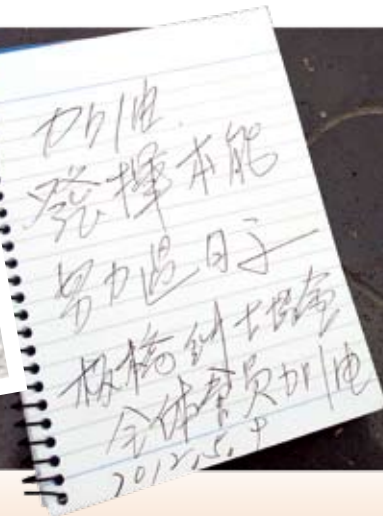 加油.
發揮本能
努力過日子
板橋
全体會員加油
2012.5.9